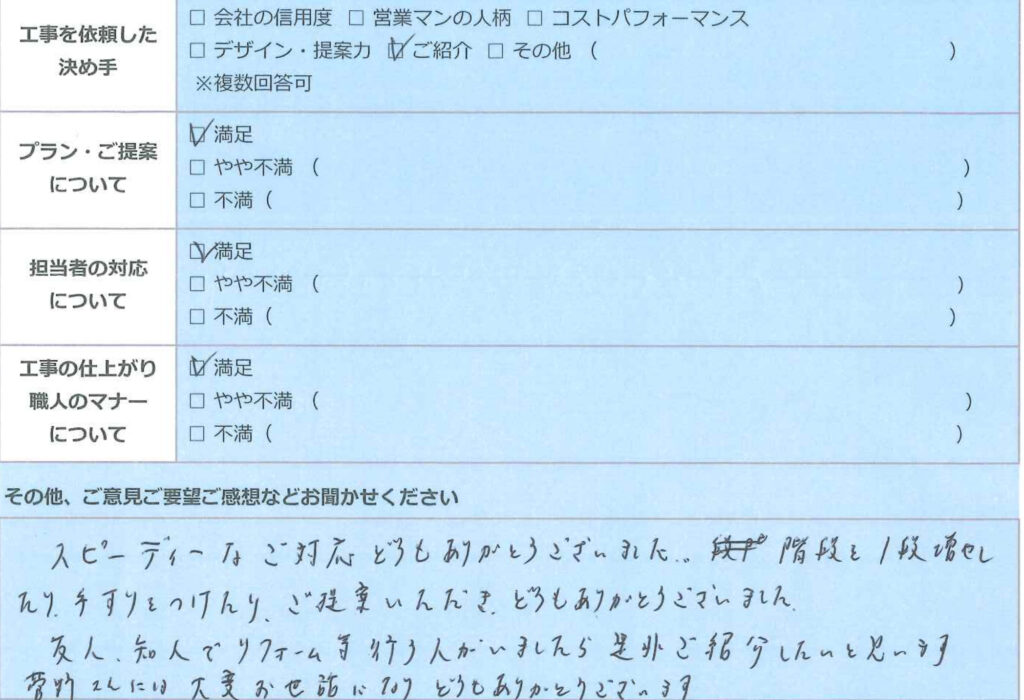 工事を依頼した
決め手
□ 会社の信用度 □ 営業マンの人柄 □ コストパフォーマンス
□ デザイン・提案力 ☑ ご紹介 □ その他 ( )
※複数回答可
プラン・ご提案
について
☑ 満足
□ やや不満 ( )
□ 不満 ( )
担当者の対応
について
☑ 満足
□ やや不満 ( )
□ 不満 ( )
工事の仕上がり
職人のマナー
について
☑ 満足
□ やや不満 ( )
□ 不満 ( )
その他、ご意見ご要望ご感想などお聞かせください
スピーディーなご対応どうもありがとうございました。 階段を1段増やし
たり、手すりをつけたり、ご提案いただき、どうもありがとうございました。
友人、知人でリフォーム等行う人がいましたら是非ご紹介したいと思います
菅野さんには大変お世話になりどうもありがとうございます